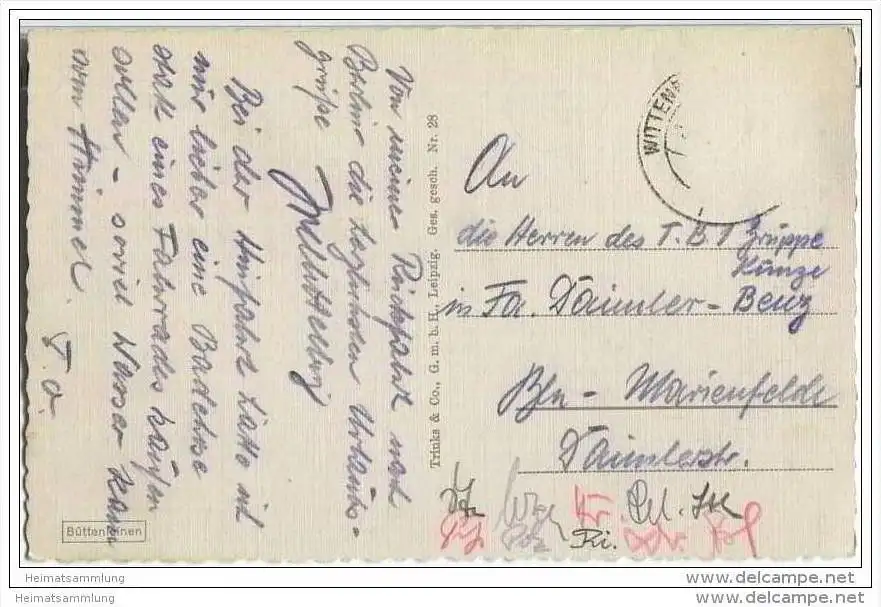 Von meiner Rückfahrt nach
Berlin die herzlichsten Urlaubs-
grüße
Bei der Hinfahrt hätte ich
mir lieber eine Badehose
statt eines Fahrrades kaufen
sollen - soviel Wasser kam
vom Himmel.
D. O.
Büttenleinen
Trinks & Co., G. m. b. H., Leipzig. Ges. gesch. Nr. 28
WITTEN
An
die Herren des T.B.1 Gruppe
Kunze
in Fa. Daimler-Benz
Bln - Marienfelde
Daimlerstr.
Kr.
Ri.
Heimatsammlung
Heimatsammlung
www.delcampe.net
www.delcampe.net